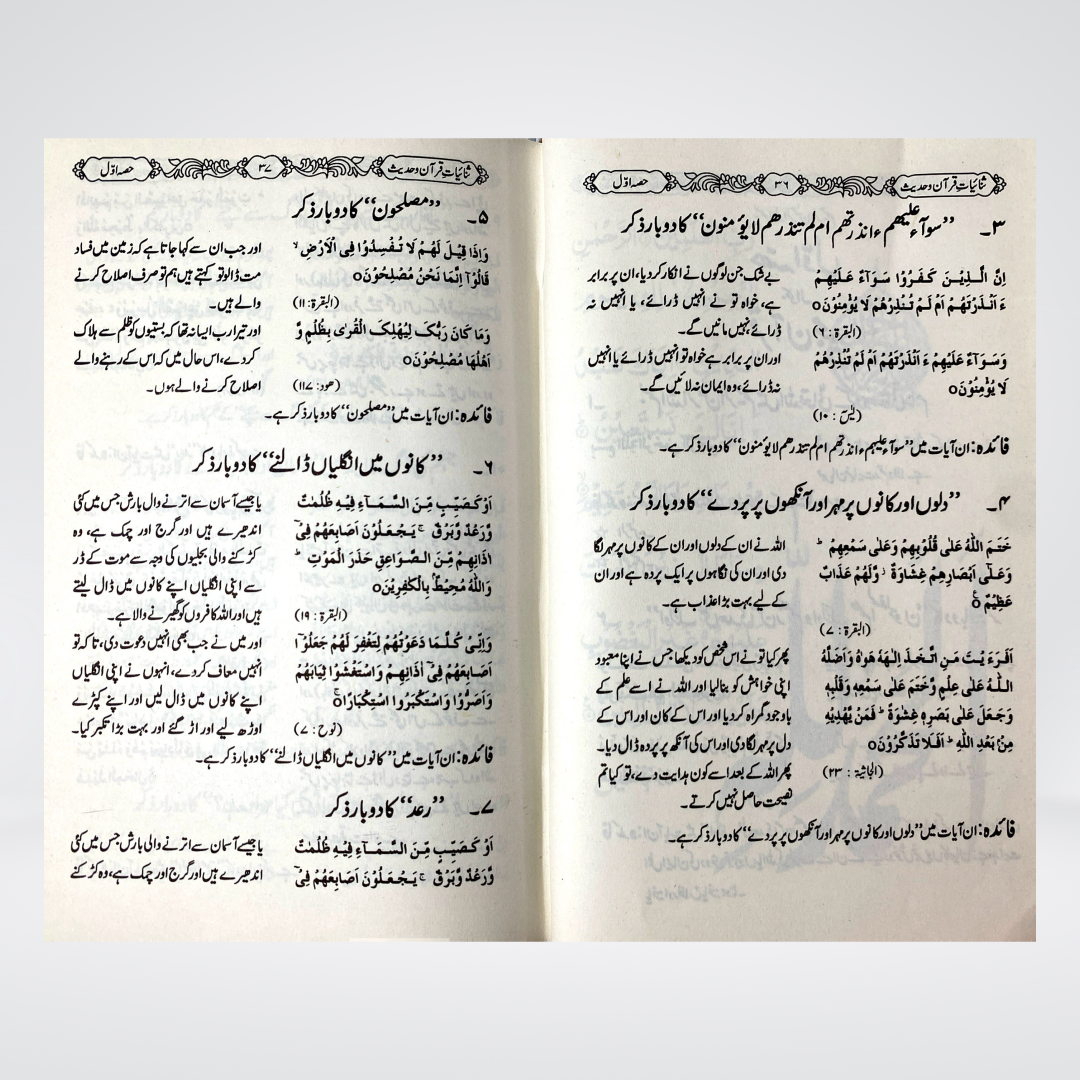 ثنائیات قرآن وحدیث ۳۶ حصہ اوّل
۳۔ ”سوآء علیھم ءانذرتھم ام لم تنذرھم لایؤمنون“ کا دو بار ذکر
اِنَّ الَّذِیْنَ کَفَرُوْا سَوَآءٌ عَلَیْہِمْ
ءَ اَنْذَرْتَہُمْ اَمْ لَمْ تُنْذِرْہُمْ لَا یُؤْمِنُوْنَo
(البقرۃ: ۶)
بے شک جن لوگوں نے انکار کر دیا، ان پر برابر
ہے، خواہ تو نے انہیں ڈرائے، یا انہیں نہ
ڈرائے، نہیں مانیں گے۔
وَسَوَآءٌ عَلَیْہِمْ ءَ اَنْذَرْتَہُمْ اَمْ لَمْ تُنْذِرْہُمْ
لَا یُؤْمِنُوْنَo
(یٰسٓ: ۱۰)
اور ان پر برابر ہے خواہ تو انہیں ڈرائے یا انہیں
نہ ڈرائے، وہ ایمان نہ لائیں گے۔
فائدہ: ان آیات میں ”سوآء علیھم ءانذرتھم ام لم تنذرھم لایؤمنون“ کا دو بار ذکر ہے۔
۴۔ ”دلوں اور کانوں پر مہر اور آنکھوں پر پردے“ کا دو بار ذکر
خَتَمَ اللّٰہُ عَلٰی قُلُوْبِہِمْ وَعَلٰی سَمْعِہِمْ ؕ
وَعَلٰٓی اَبْصَارِہِمْ غِشَاوَۃٌ ؗ وَّلَہُمْ عَذَابٌ
عَظِیْمٌo
(البقرۃ: ۷)
اللہ نے ان کے دلوں اور ان کے کانوں پر مہر لگا
دی اور ان کی نگاہوں پر ایک پردہ ہے اور ان
کے لیے بہت بڑا عذاب ہے۔
اَفَرَءَیْتَ مَنِ اتَّخَذَ اِلٰہَہٗ ہَوٰىہُ وَاَضَلَّہُ
اللّٰہُ عَلٰی عِلْمٍ وَّخَتَمَ عَلٰی سَمْعِہٖ وَقَلْبِہٖ
وَجَعَلَ عَلٰی بَصَرِہٖ غِشٰوَۃً ؕ فَمَنْ یَّہْدِیْہِ
مِنْۢ بَعْدِ اللّٰہِ ؕ اَفَلَا تَذَکَّرُوْنَo
(الجاثیۃ: ۲۳)
پھر کیا تو نے اس شخص کو دیکھا جس نے اپنا معبود
اپنی خواہش کو بنا لیا اور اللہ نے اسے علم کے
باوجود گمراہ کر دیا اور اس کے کان اور اس کے
دل پر مہر لگا دی اور اس کی آنکھ پر پردہ ڈال دیا۔
پھر اللہ کے بعد اسے کون ہدایت دے، تو کیا تم
نصیحت حاصل نہیں کرتے۔
فائدہ: ان آیات میں ”دلوں اور کانوں پر مہر اور آنکھوں پر پردے“ کا دو بار ذکر ہے۔
ثنائیات قرآن وحدیث ۳۷ حصہ اوّل
۵۔ ”مصلحون“ کا دو بار ذکر
وَاِذَا قِیْلَ لَہُمْ لَا تُفْسِدُوْا فِی الْاَرْضِ ۙ
قَالُوْٓا اِنَّمَا نَحْنُ مُصْلِحُوْنَo
(البقرۃ: ۱۱)
اور جب ان سے کہا جاتا ہے کہ زمین میں فساد
مت ڈالو تو کہتے ہیں ہم تو صرف اصلاح کرنے
والے ہیں۔
وَمَا کَانَ رَبُّکَ لِیُہْلِکَ الْقُرٰی بِظُلْمٍ وَّ
اَہْلُہَا مُصْلِحُوْنَo
(ھود: ۱۱۷)
اور تیرا رب ایسا نہ تھا کہ بستیوں کو ظلم سے ہلاک
کر دے، اس حال میں کہ اس کے رہنے والے
اصلاح کرنے والے ہوں۔
فائدہ: ان آیات میں ”مصلحون“ کا دو بار ذکر ہے۔
۶۔ ”کانوں میں انگلیاں ڈالنے“ کا دو بار ذکر
اَوْ کَصَیِّبٍ مِّنَ السَّمَآءِ فِیْہِ ظُلُمٰتٌ
وَّرَعْدٌ وَّبَرْقٌ ۚ یَجْعَلُوْنَ اَصَابِعَہُمْ فِیْٓ
اٰذَانِہِمْ مِّنَ الصَّوَاعِقِ حَذَرَ الْمَوْتِ ؕ
وَاللّٰہُ مُحِیْطٌۢ بِالْکٰفِرِیْنَo
(البقرۃ: ۱۹)
یا جیسے آسمان سے اترنے وال بارش جس میں کئی
اندھیرے ہیں اور گرج اور چمک ہے، وہ
کڑکنے والی بجلیوں کی وجہ سے موت کے ڈر
سے اپنی انگلیاں اپنے کانوں میں ڈال لیتے
ہیں اور اللہ کافروں کو گھیرنے والا ہے۔
وَاِنِّیْ کُلَّمَا دَعَوْتُہُمْ لِتَغْفِرَ لَہُمْ جَعَلُوْٓا
اَصَابِعَہُمْ فِیْٓ اٰذَانِہِمْ وَاسْتَغْشَوْا ثِیَابَہُمْ
وَاَصَرُّوْا وَاسْتَکْبَرُوا اسْتِکْبَارًاo
(نوح: ۷)
اور میں نے جب بھی انہیں دعوت دی، تاکہ تو
انہیں معاف کر دے، انہوں نے اپنی انگلیاں
اپنے کانوں میں ڈال لیں اور اپنے کپڑے
اوڑھ لیے اور اڑ گئے اور بہت بڑا تکبر کیا۔
فائدہ: ان آیات میں ”کانوں میں انگلیاں ڈالنے“ کا دو بار ذکر ہے۔
۷۔ ”رعد“ کا دو بار ذکر
اَوْ کَصَیِّبٍ مِّنَ السَّمَآءِ فِیْہِ ظُلُمٰتٌ
وَّرَعْدٌ وَّبَرْقٌ ۚ یَجْعَلُوْنَ اَصَابِعَہُمْ فِیْٓ
یا جیسے آسمان سے اترنے والی بارش جس میں کئی
اندھیرے ہیں اور گرج اور چمک ہے، وہ کڑکنے